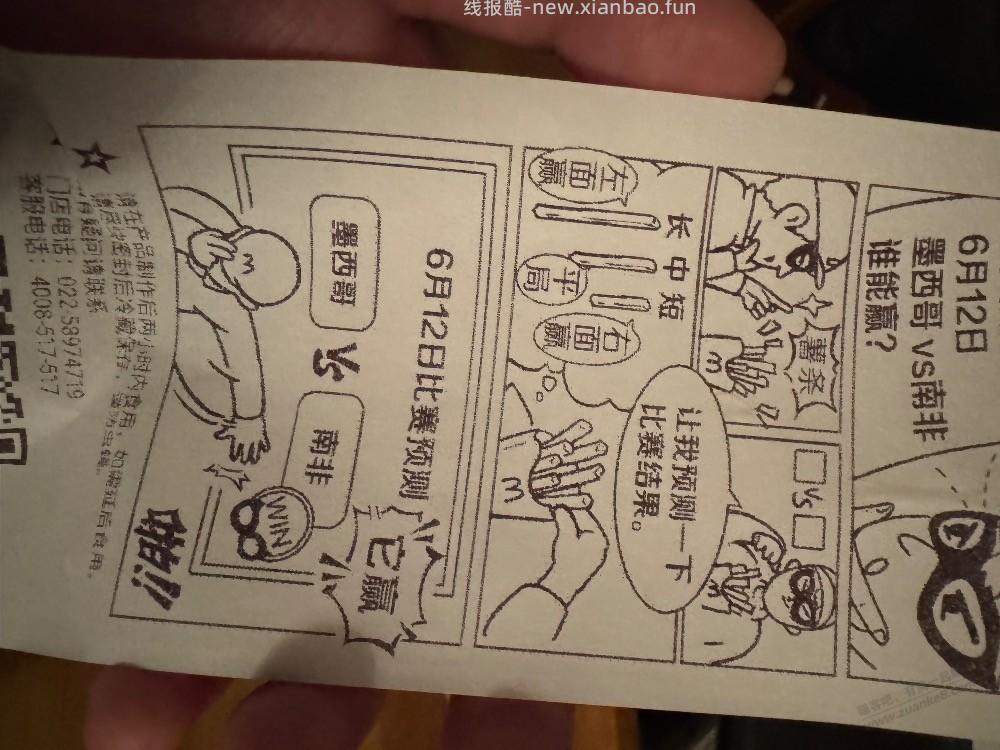 线报酷-new.xianbao.fun
6月12日
墨西哥 VS南非
谁能赢？
薯条
VS
让我预测一下
比赛结果。
长 中 短
左面赢
平局
右面赢
6月12日比赛预测
墨西哥
VS
南非
WIN
它赢
!!
请在产品制作后两小时内食用，如需延后食用，
请您密封后冷藏保存，
门店电话：022-58974719
客服电话：4008-517-517
www.zuanke8